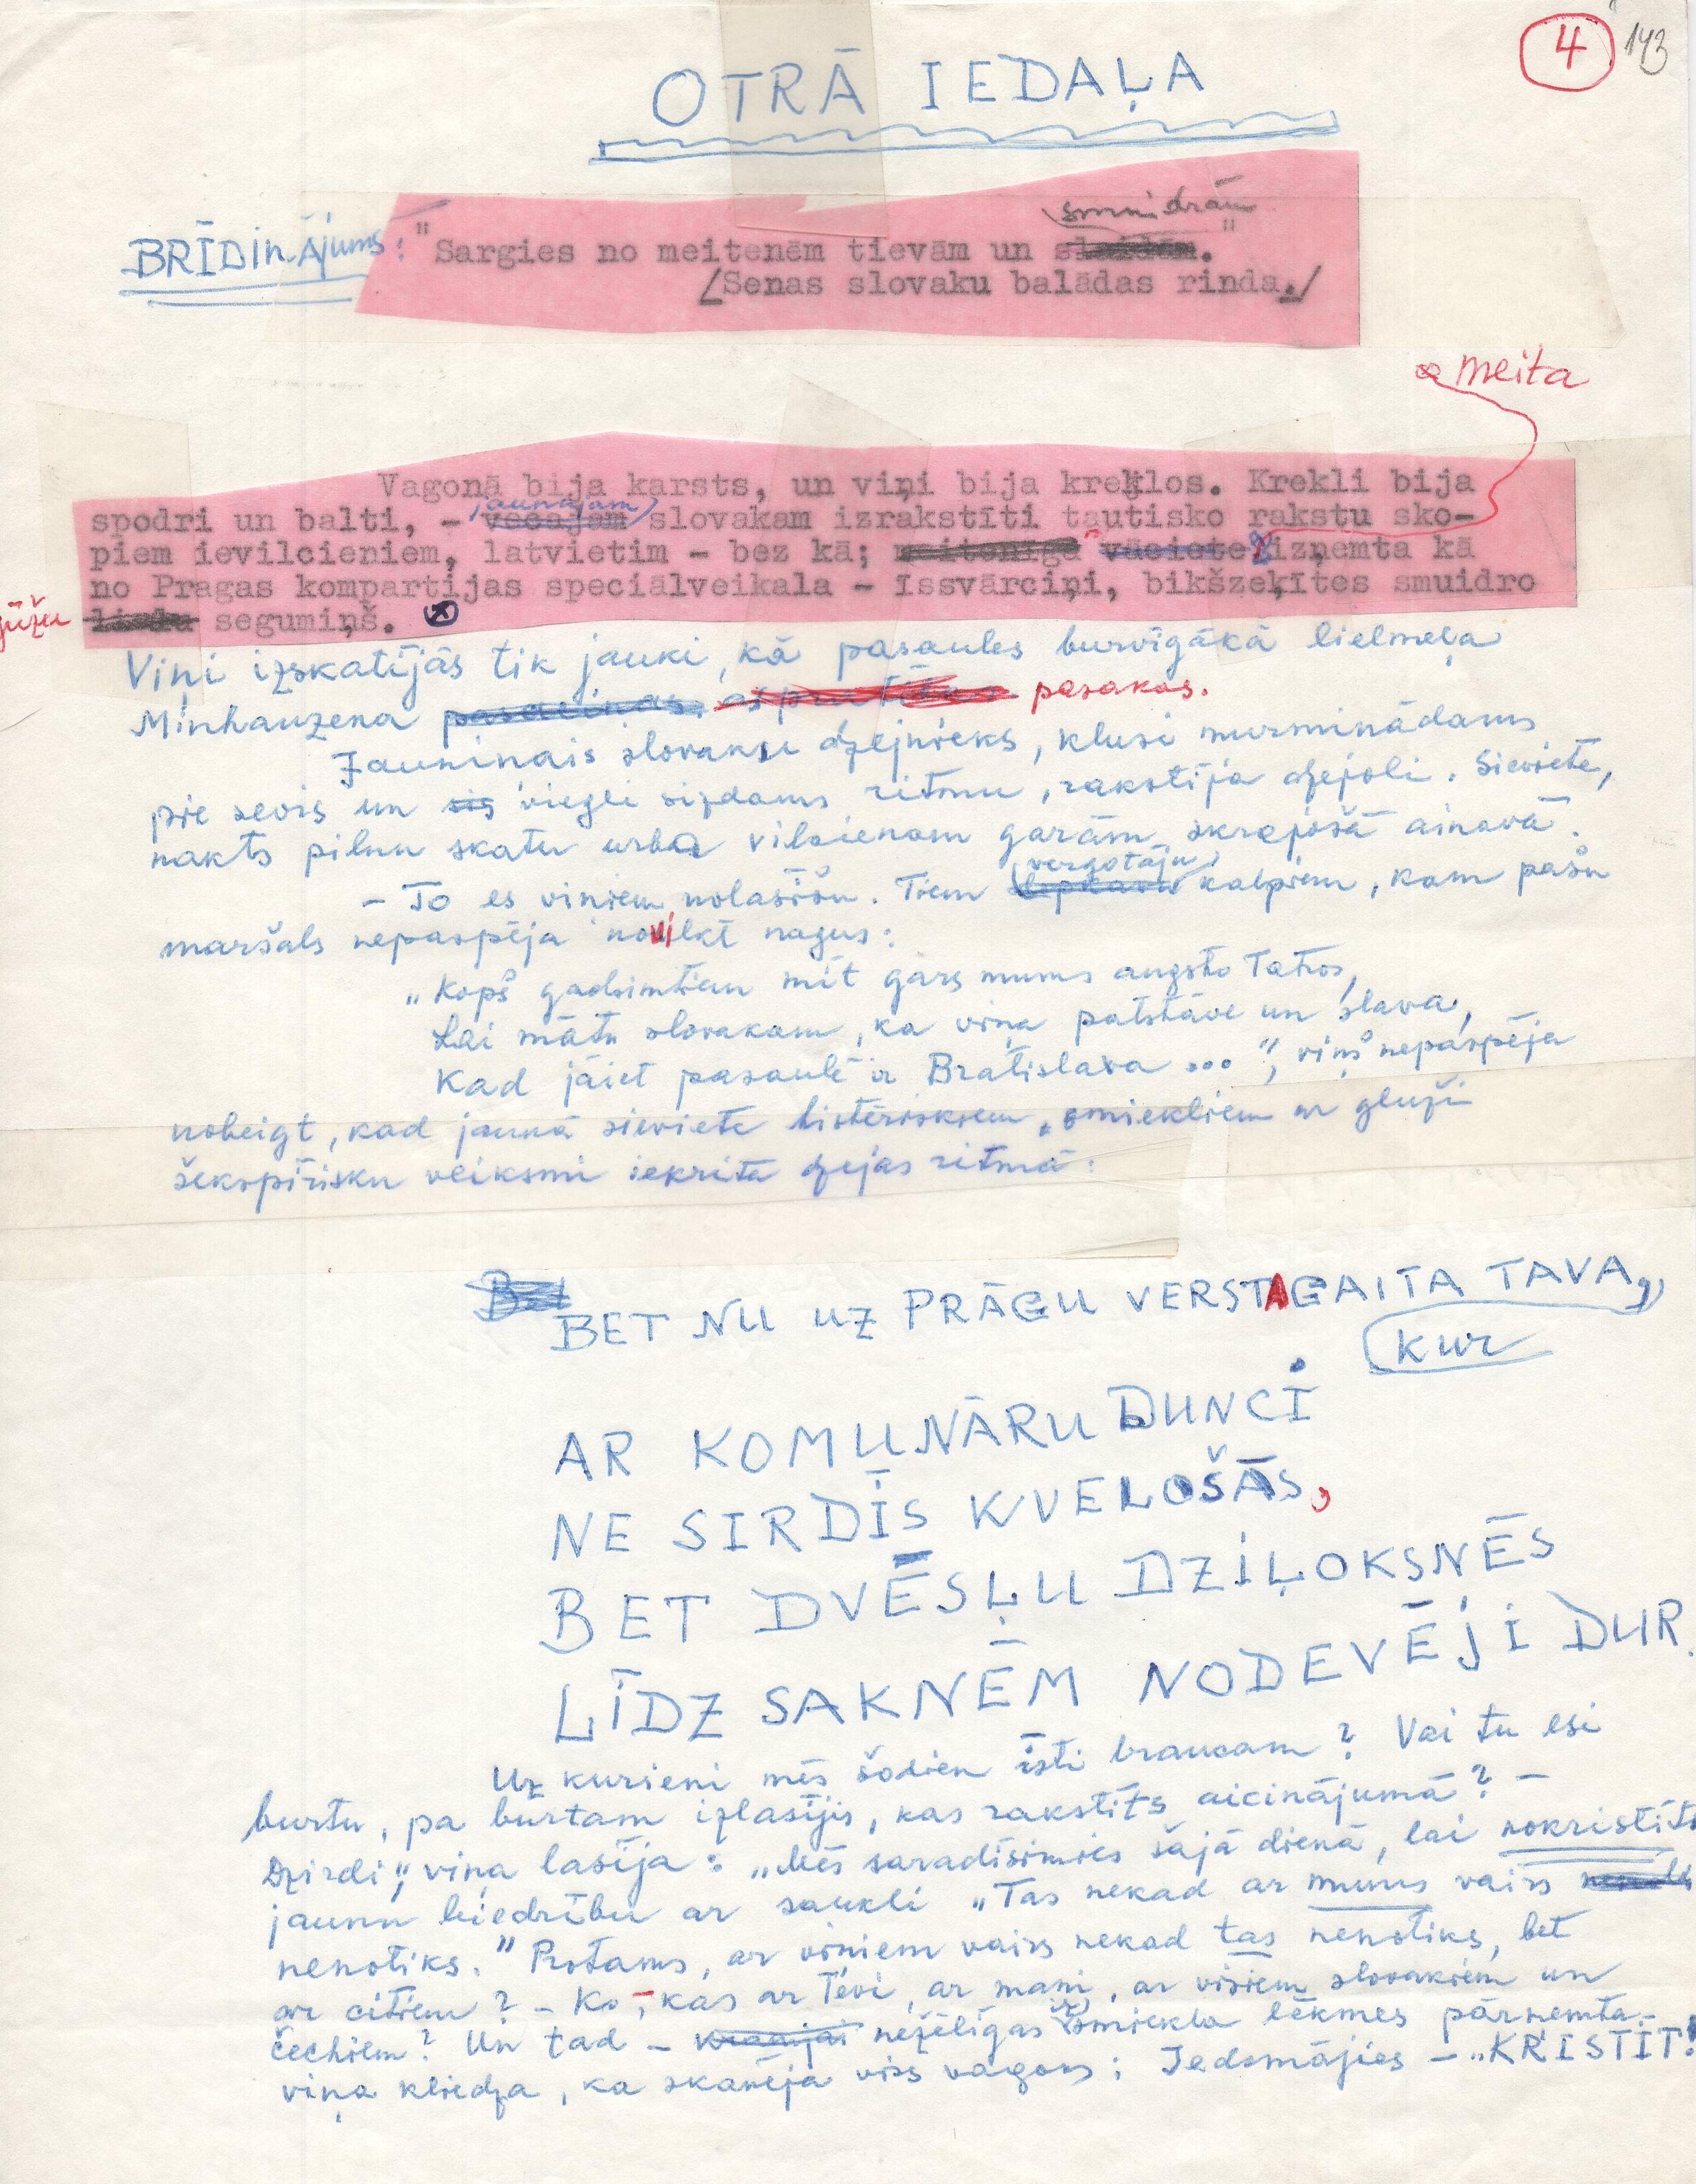 4 143
OTRĀ IEDAĻA
smuidrām
BRĪDINĀJUMS: "Sargies no meitenēm tievām un slaidām."
/Senas slovaku balādas rinda./
meita
Vagonā bija karsts, un viņi bija kreklos. Krekli bija
jaunajam
spodri un balti, - vecajam slovakam izrakstīti tautisko rakstu sko-
piem ievilcieniem, latvietim - bez kā; meitenīgā vāciete izņemta kā
no Pragas kompartijas speciālveikala - īssvārciņi, bikšzeķītes smuidro
gūžu segumiņš.
Viņi izskatījās tik jauki, kā pasaules burvīgākā lielmeļa
Minhauzena pasaciņas. pasakas.
Jauninais slovaku dzejnieks, klusi murminādams
pie sevis un sis viegli sizdams ritmu, rakstīja dzejoli. Sieviete,
nakts pilnu skatu urba vilcienam garām skrejošā ainavā.
vergotāju
- To es viņiem nolasīšu. Tiem kalpiem, kam pašu
maršals nepaspēja novilkt nagus:
„Kopš gadsimtiem mīt gars mums augsto Tatros,
Lai mātu slovakam, ka viņa patstāve un slava,
Kad jāiet pasaulē ir Bratislava ...", viņš nepaspēja
nobeigt, kad jaunā sieviete histēriskiem smiekliem ar gluži
šekspīrisku veiksmi iekrita dzejas ritmā:
BET NU UZ PRĀGU VERSTA GAITA TAVA,
kur
AR KOMUNĀRU DUNCI
NE SIRDĪS KVELOŠĀS,
BET DVĒSĻU DZIĻOKSNĒS
LĪDZ SAKNĒM NODEVĒJI DUR.
Uz kurieni mēs šodien īsti braucam? Vai tu esi
burtu pa burtam izlasījis, kas rakstīts aicinājumā? -
Dzirdi", viņa lasīja: „Mēs saradīsimies šajā dienā, lai nokristītu
jaunu biedrību ar saukli „Tas nekad ar mums vairs
nenotiks." Protams, ar viņiem vairs nekad tas nenotiks, bet
ar citiem? - Ko, kas ar Tevi, ar mani, ar visiem slovakiem un
čechiem? Un tad - nežēlīgas smieklu lēkmes pārņemta -
viņa kliedza, ka skanēja viss vagons: Iedomājies - „KRISTĪT!